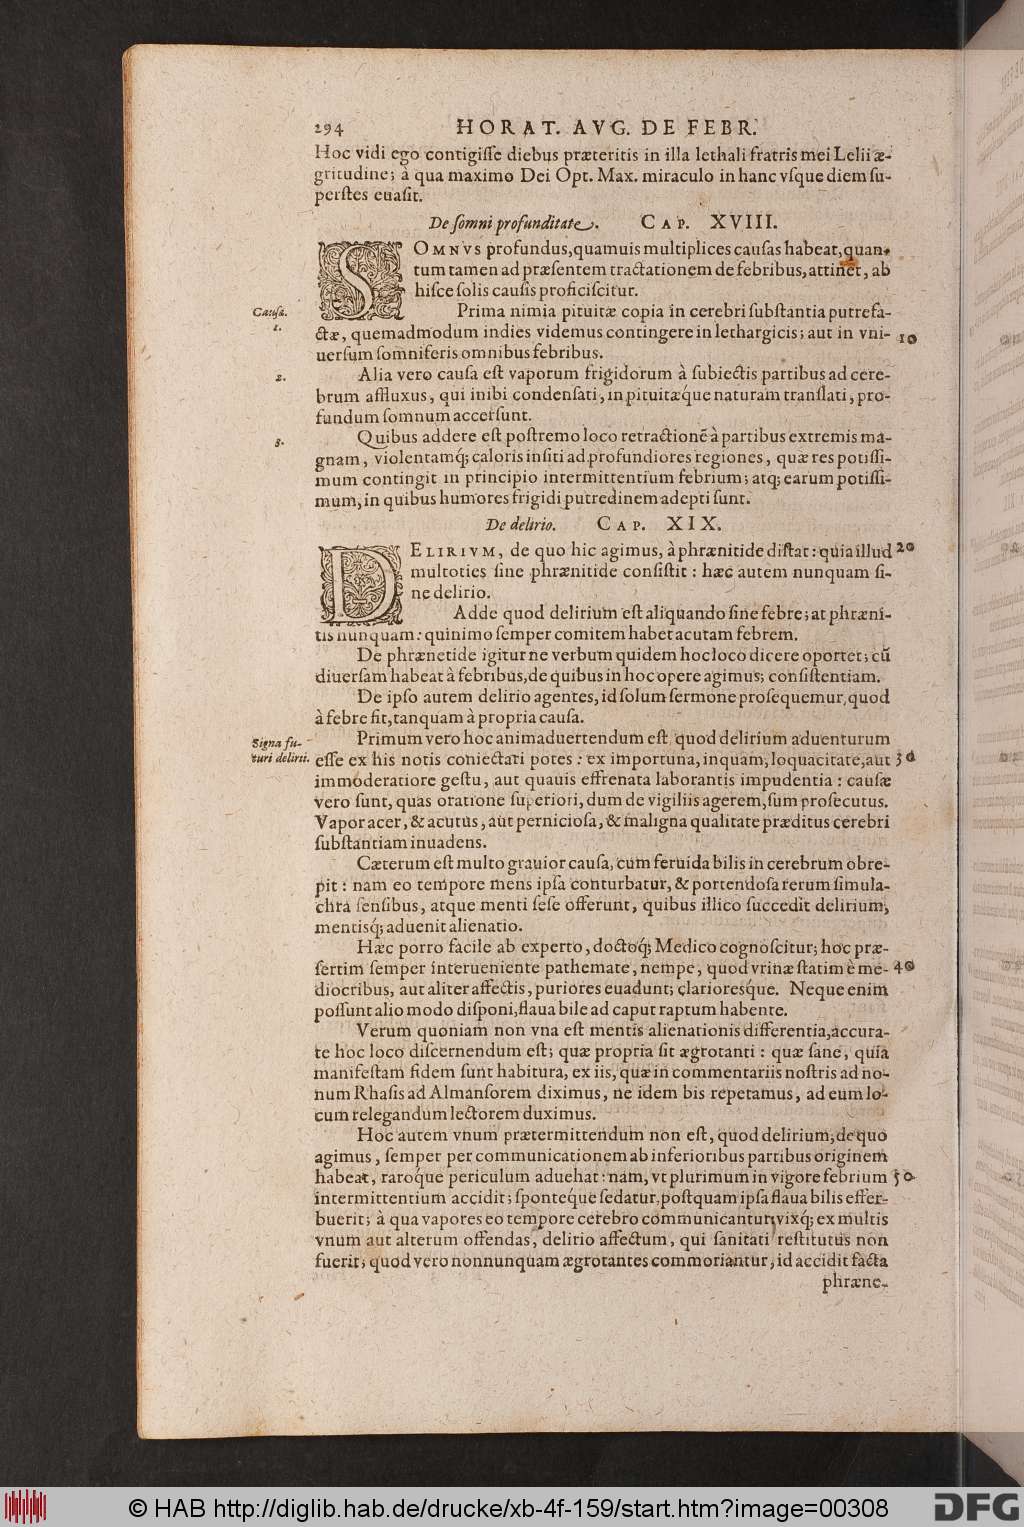 294 HORAT. AVG. DE FEBR.
Hoc vidi ego contigiſſe diebus præteritis in illa lethali fratris mei Lelii æ-
gritudine; à qua maximo Dei Opt. Max. miraculo in hanc vſque diem ſu-
perſtes euaſit.
De ſomni profunditate. CAP. XVIII.
SOMNVS profundus, quamuis multiplices cauſas habeat, quan-
tum tamen ad præſentem tractationem de febribus, attinet, ab
hiſce ſolis cauſis proficiſcitur.
Cauſa. 1. Prima nimia pituitæ copia in cerebri ſubſtantia putrefa-
ctæ, quemadmodum indies videmus contingere in lethargicis; aut in vni- 10
uerſum ſomniferis omnibus febribus.
2. Alia vero cauſa eſt vaporum frigidorum à ſubiectis partibus ad cere-
brum affluxus, qui inibi condenſati, in pituitæq́ue naturam tranſlati, pro-
fundum ſomnum accerſunt.
3. Quibus addere eſt poſtremo loco retractionē à partibus extremis ma-
gnam, violentamq́; caloris inſiti ad profundiores regiones, quæ res potiſſi-
mum contingit in principio intermittentium febrium; atq; earum potiſſi-
mum, in quibus humores frigidi putredinem adepti ſunt.
De delirio. CAP. XIX.
DELIRIVM, de quo hic agimus, à phrænitide diſtat: quia illud 20
multoties ſine phrænitide conſiſtit: hæc autem nunquam ſi-
ne delirio.
Adde quod delirium eſt aliquando ſine febre; at phræni-
tis nunquam: quinimo ſemper comitem habet acutam febrem.
De phrænetide igitur ne verbum quidem hoc loco dicere oportet; cū
diuerſam habeat à febribus, de quibus in hoc opere agimus; conſiſtentiam.
De ipſo autem delirio agentes, id ſolum ſermone proſequemur, quod
à febre fit, tanquam à propria cauſa.
Signa fu-
turi delirii.
Primum vero hoc animaduertendum eſt, quod delirium aduenturum
eſſe ex his notis coniectari potes: ex importuna, inquam, loquacitate, aut 30
immoderatiore geſtu, aut quauis effrenata laborantis impudentia: cauſæ
vero ſunt, quas oratione ſuperiori, dum de vigiliis agerem, ſum proſecutus.
Vapor acer, & acutus, aut pernicioſa, & maligna qualitate præditus cerebri
ſubſtantiam inuadens.
Cæterum eſt multo grauior cauſa, cum feruida bilis in cerebrum obre-
pit: nam eo tempore mens ipſa conturbatur, & portendoſa rerum ſimula-
chra ſenſibus, atque menti ſeſe offerunt, quibus illico ſuccedit delirium,
mentisq́; aduenit alienatio.
Hæc porro facile ab experto, doctoq́; Medico cognoſcitur; hoc præ-
ſertim ſemper interueniente pathemate, nempe, quod vrinæ ſtatim è me- 40
diocribus, aut aliter affectis, puriores euadunt; clarioresq́ue. Neque enim
poſſunt alio modo diſponi, flaua bile ad caput raptum habente.
Verum quoniam non vna eſt mentis alienationis differentia, accura-
te hoc loco diſcernendum eſt; quæ propria ſit ægrotanti: quæ ſane, quia
manifeſtam fidem ſunt habitura, ex iis, quæ in commentariis noſtris ad no-
num Rhaſis ad Almanſorem diximus, ne idem bis repetamus, ad eum lo-
cum relegandum lectorem duximus.
Hoc autem vnum prætermittendum non eſt, quod delirium, de quo
agimus, ſemper per communicationem ab inferioribus partibus originem
habeat, raroq́ue periculum aduehat: nam, vt plurimum in vigore febrium 50
intermittentium accidit; ſponteq́ue ſedatur, poſtquam ipſa flaua bilis effer-
buerit; à qua vapores eo tempore cerebro communicantur, vixq́; ex multis
vnum aut alterum offendas, delirio affectum, qui ſanitati reſtitutus non
fuerit; quod vero nonnunquam ægrotantes commoriantur, id accidit facta
phræne-
© HAB http://diglib.hab.de/drucke/xb-4f-159/start.htm?image=00308
DFG